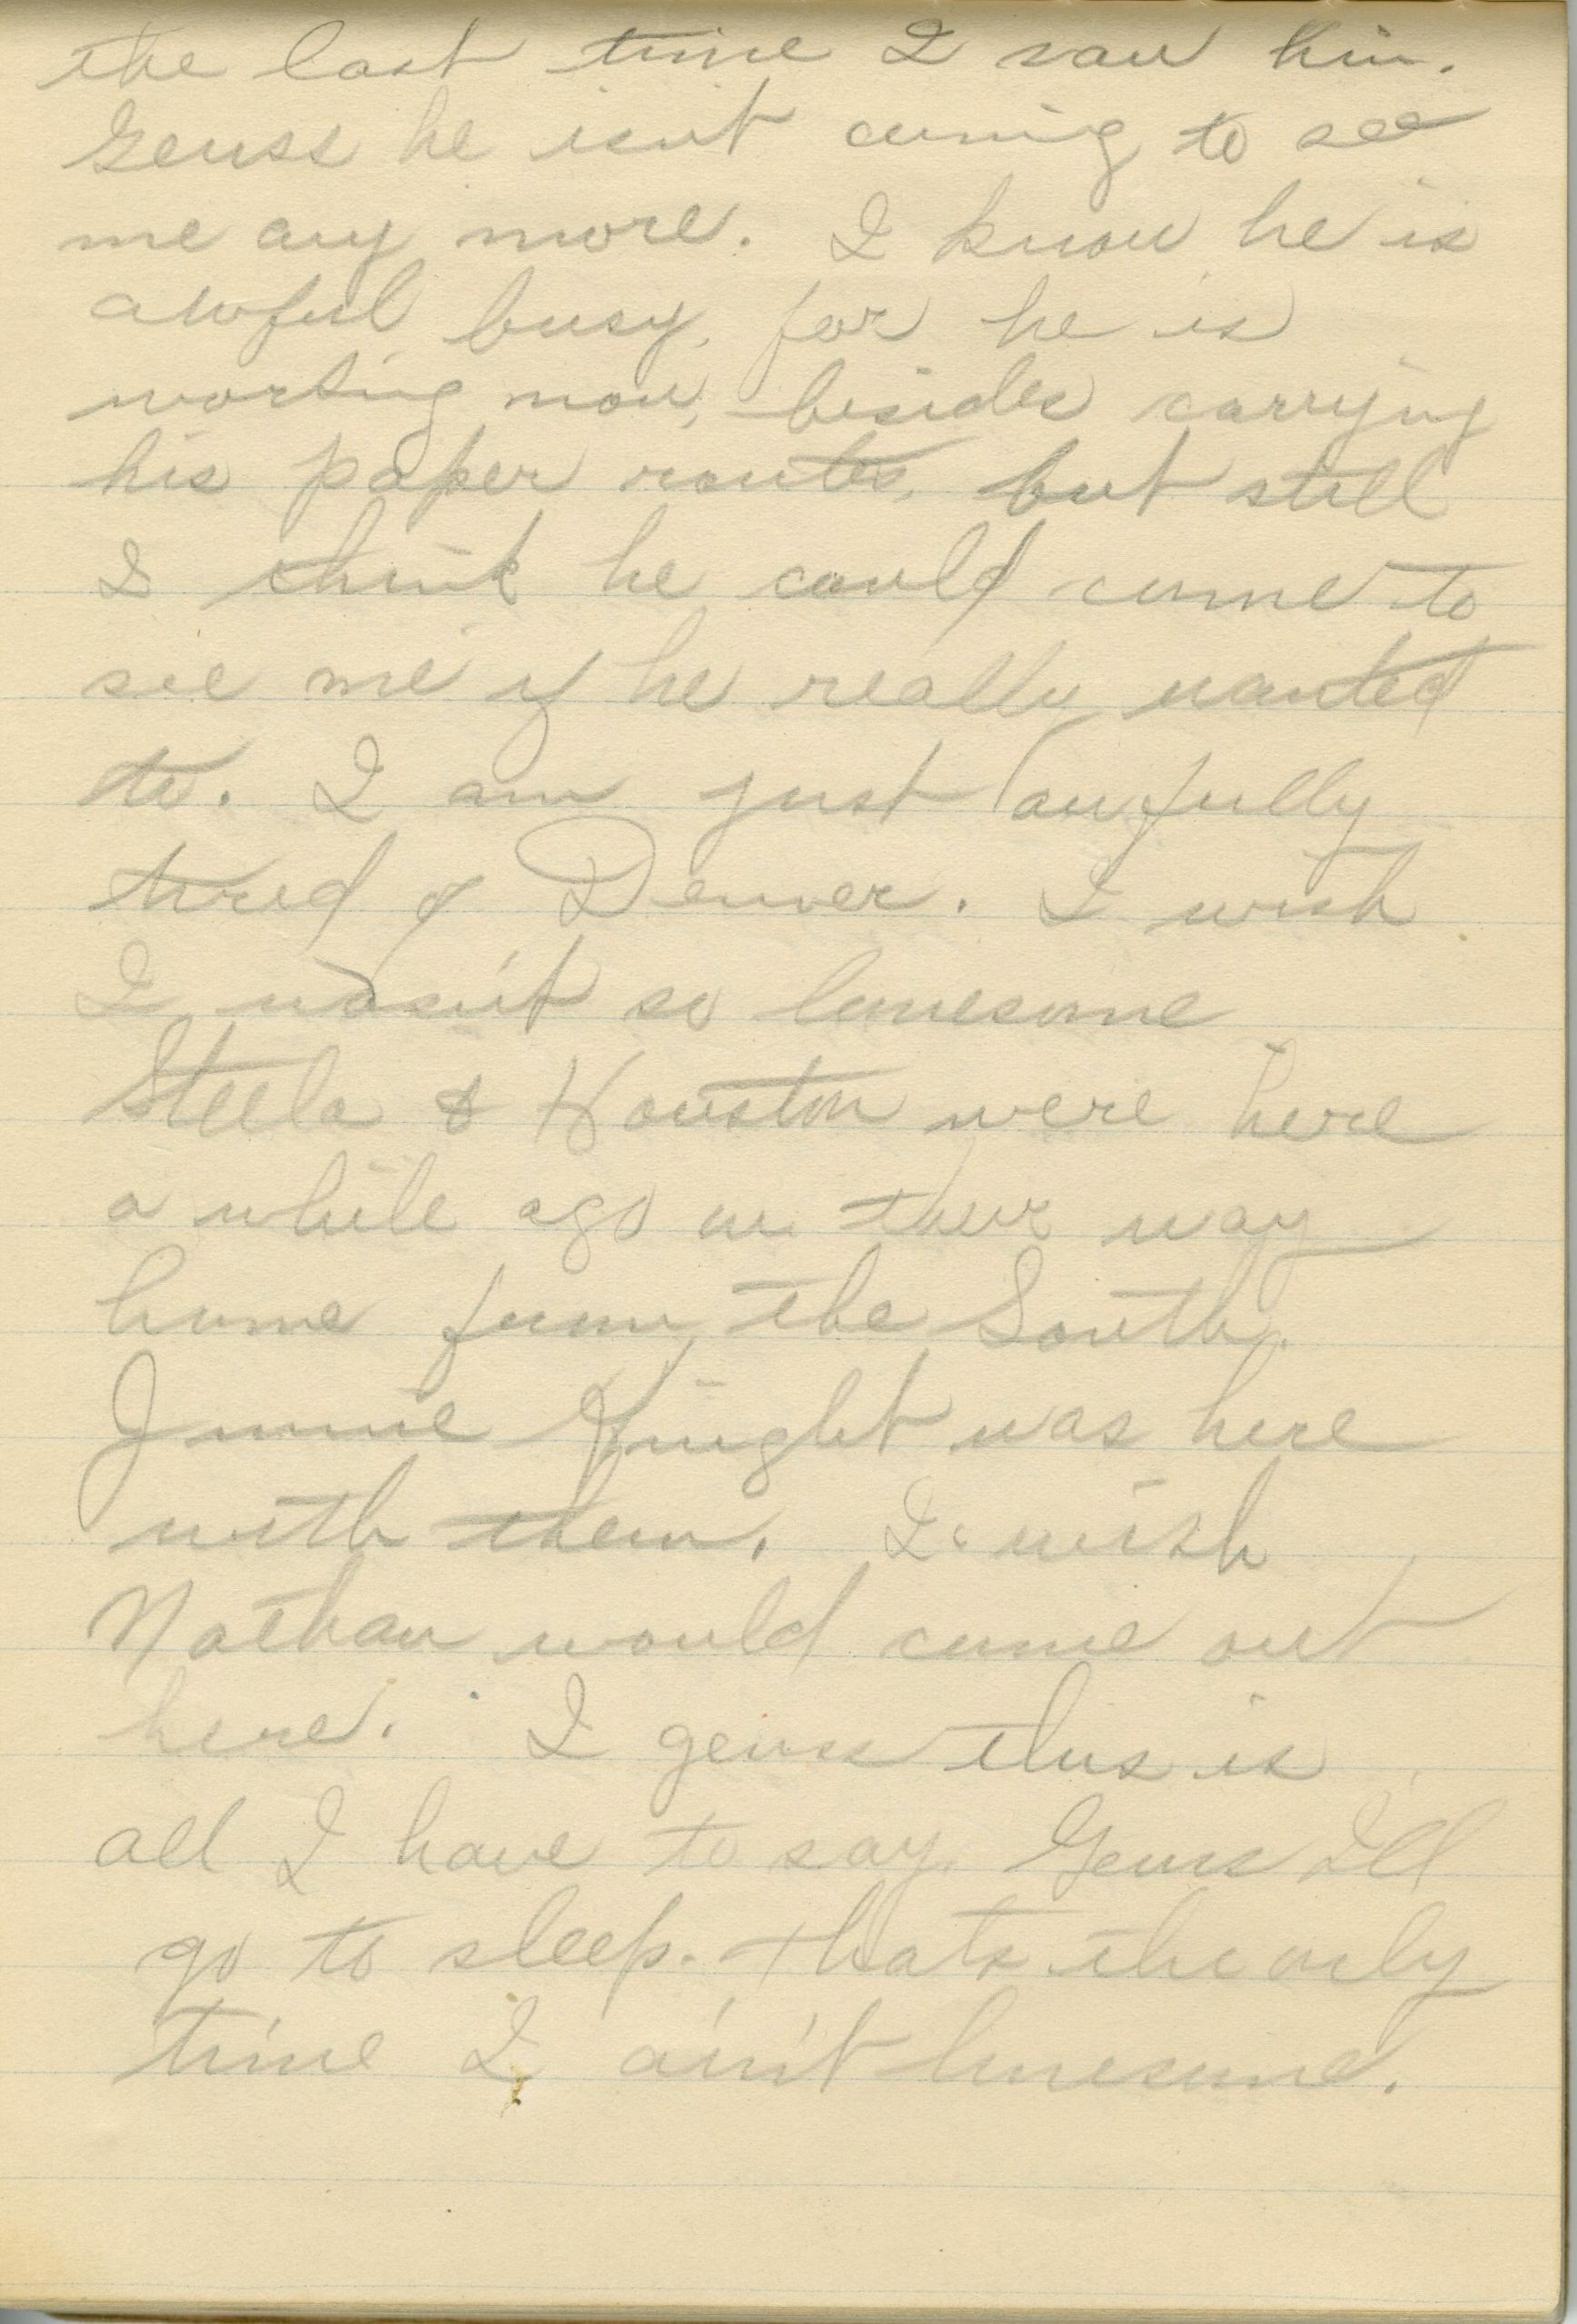 the last time I saw him.
Geuss he isn't coming to see
me any more. I know he is
awful busy, for he is
working now, besides carrying
his paper routes, but still
I think he could come to
see me if he really wanted
to. I am just awfully
tired of Denver. I wish
I wasn't so lonesome
Steela & Houston were here
a while ago on their way
home from the South.
Jimmie Knight was here
with them. I wish
Nathan would come out
here. I geuss this is
all I have to say. Geuss I'll
go to sleep. thats the only
time I ain't lonesome.